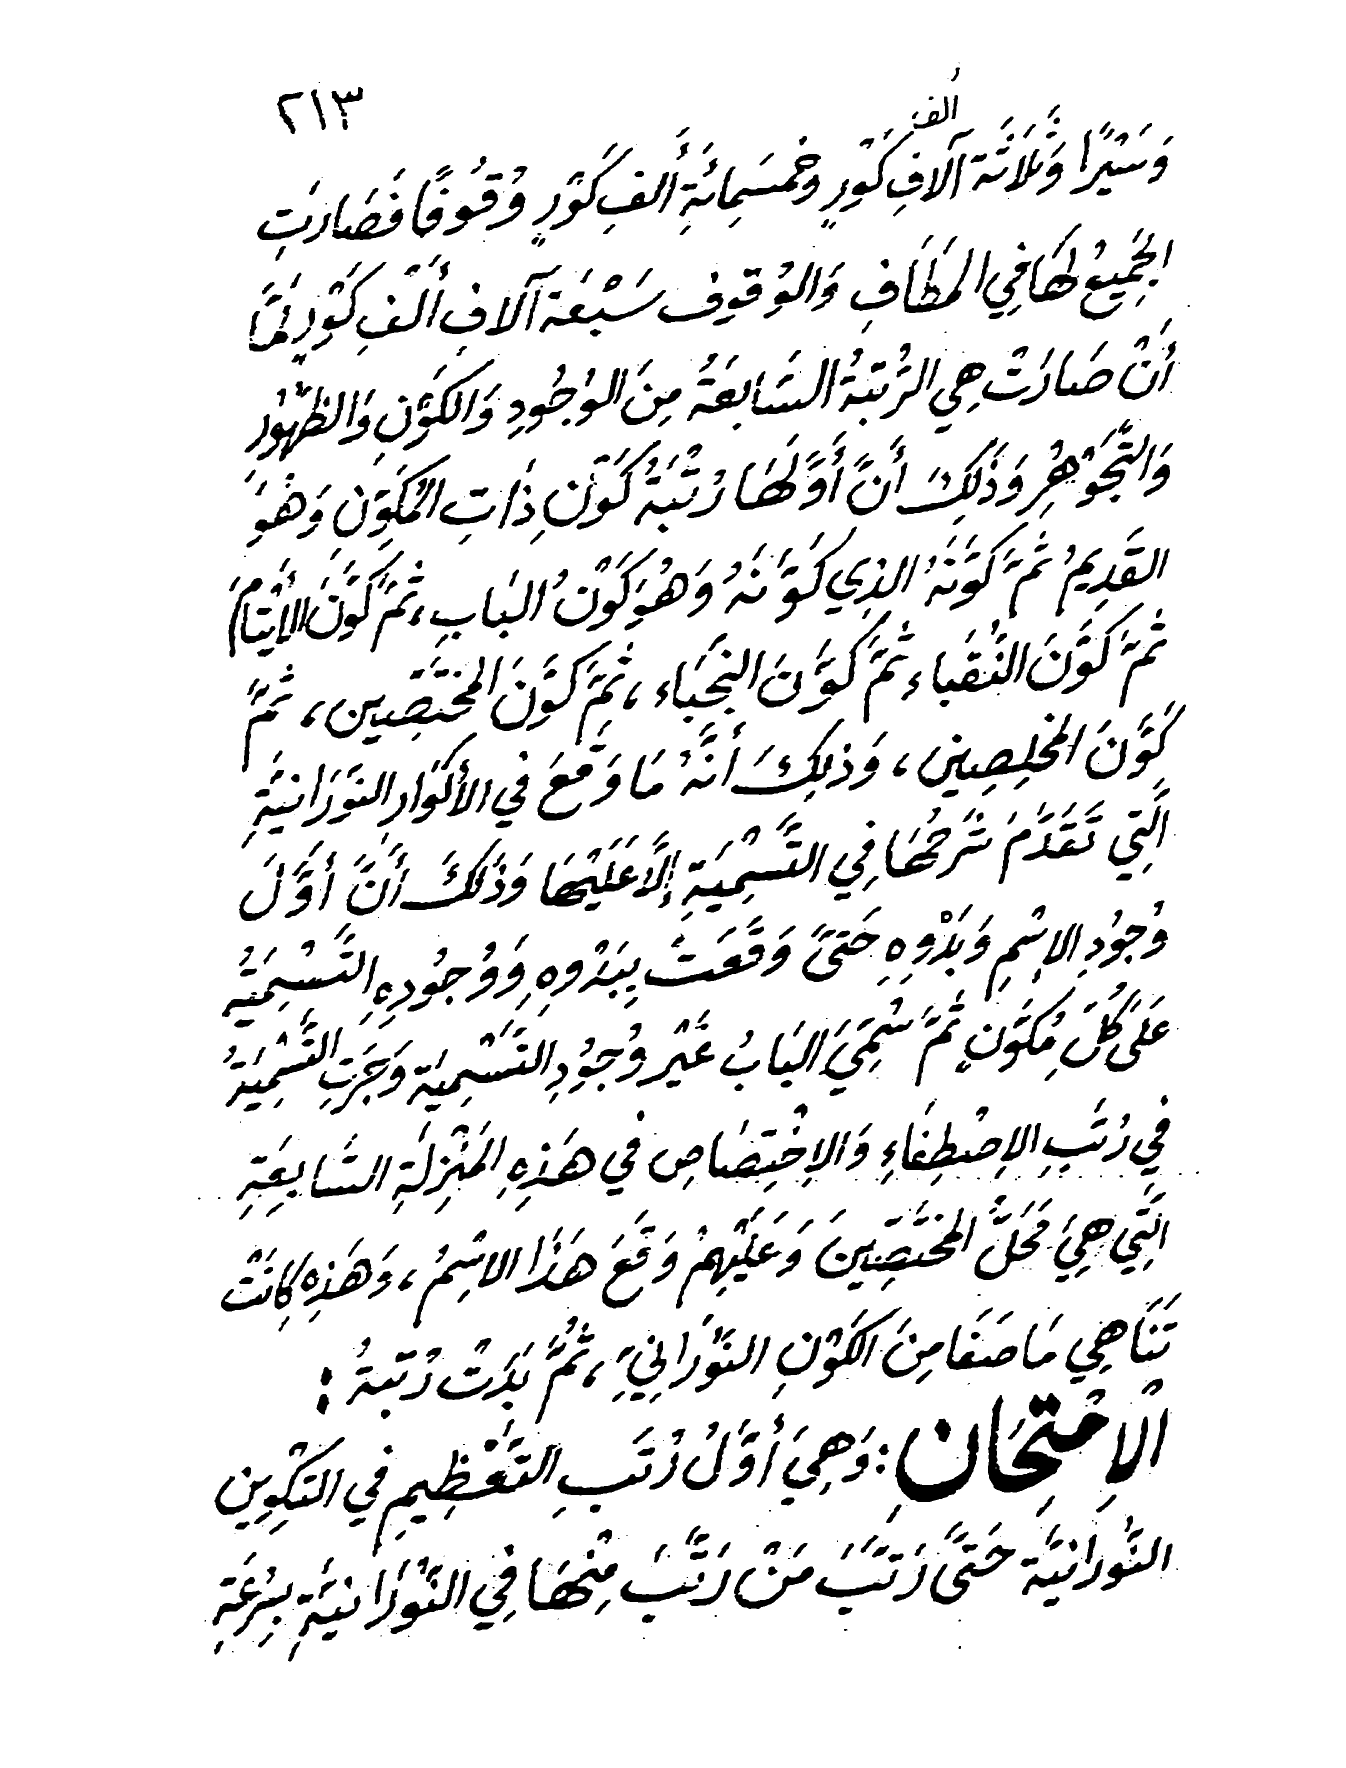 ٢١٣
ألف
وَسَيْرًا وَثَلَاثَة آلَافِ كَوْرٍ وَخَمْسَمِائَةِ أَلْفِ كَوْرٍ وُقُوفًا فَصَارَتِ
الجَمِيعُ لَهَا فِي المَطَافِ وَالوُقوفِ سَبْعَة آلَافِ أَلْفِ كَوْرٍ لَمَّا
أَنْ صَارَتْ هِي الرُّتْبَةُ السَّابِعَةُ مِنَ الوُجُودِ وَالكَوْنِ وَالظُّهُورِ
وَالتَّجَوْهُرِ وَذَلِكَ أَنَّ أَوَّلَهَا رُتْبَةُ كَوْنِ ذَاتِ المُكَوِّنِ وَهُوَ
القَدِيمُ ثُمَّ كَوَّنَهُ الذِي كَوَّنَهُ وَهُوَ كَوْنُ البَابِ، ثُمَّ كَوَّنَ الأَيْتَامَ
ثُمَّ كَوَّنَ النُّقَبَاءِ ثُمَّ كَوَّنَ النُّجَبَاء، ثُمَّ كَوَّنَ المُخْتَصِّين، ثُمَّ
كَوَّنَ المُخْلِصِين، وَذَلِكَ أَنَّهُ مَا وَقَعَ فِي الأَكْوَارِ النَّوْرَانِيَّةِ
الَّتِي تَقَدَّمَ شَرْحُهَا فِي التَّسْمِيَةِ إِلَّا عَلَيْهَا وَذَلِكَ أَنَّ أَوَّلَ
وُجُودِ الإِسْمِ وَبَدْوِهِ حَتَّى وَقَعَتْ بِبَدْوِهِ وَوُجُودِهِ التَّسْمِيَةُ
عَلَى كُلِّ مُكَوَّنٍ ثُمَّ سُمِّيَ البَابُ غَيْر وُجُودِ التَّسْمِيَةِ وَجَرَتِ التَّسْمِيَةُ
فِي رُتَبِ الاِصْطِفَاءِ وَالاِخْتِصَاصِ فِي هَذِهِ المَنْزِلَةِ السَّابِعَةِ
الَّتِي هِيَ مَحَلُّ المُخْتَصِّينَ وَعَلَيْهِمْ وَقَعَ هَذَا الاسْمُ، وَهَذِهِ كَانَتْ
تَنَاهِي مَا صَفَا مِنَ الكَوْنِ النَّوْرَانِيِّ، ثُمَّ بَدَتْ رُتْبَةُ :
الاِمْتِحَانِ : وَهِيَ أَوَّلُ رُتَبِ التَّعْظِيمِ فِي التَّكْوِينِ
النَّوْرَانِيَّة حَتَّى رَتَّبَ مَنْ رَتَّبَ مِنْهَا فِي النَّوْرَانِيَّةِ بِسُرْعَةِ